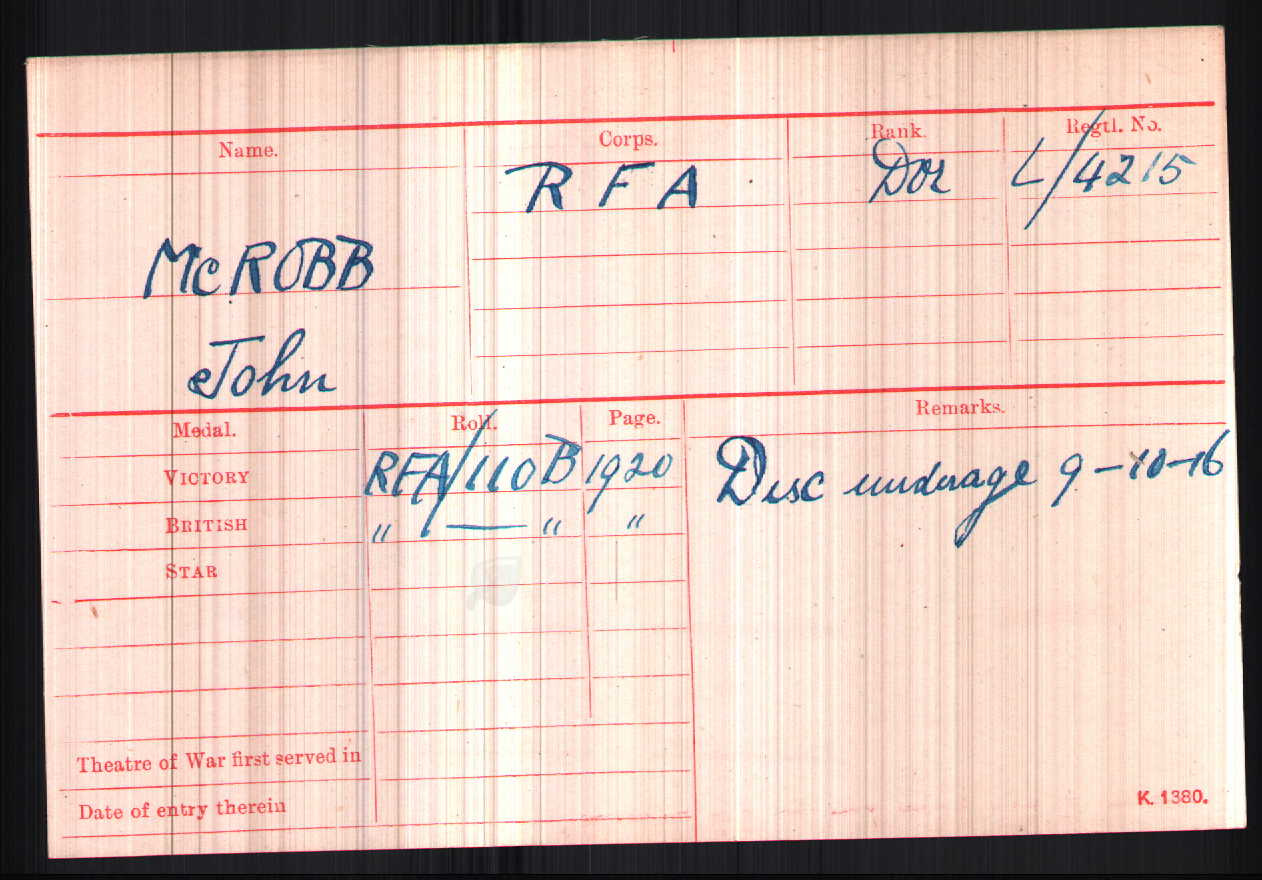 Name. Corps. Rank. Regtl. No.
R F A Dvr L/4215
McROBB
John
Medal. Roll. Page. Remarks.
VICTORY RFA/110B 1920 Disc underage 9-10-16
BRITISH " — " "
STAR
Theatre of War first served in
Date of entry therein
K. 1380.